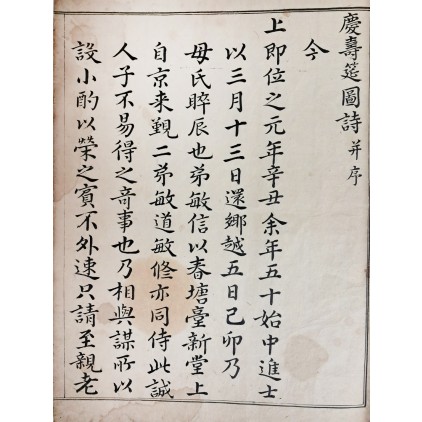 慶壽筵圖詩 并序
今
上即位之元年辛丑余年五十始中進士
以三月十三日還鄉越五日己卯乃
母氏晬辰也弟敏信以春塘臺新堂上
自京来覲二弟敏道敏修亦同侍此誠
人子不易得之竒事也乃相與謀所以
設小酌以榮之賓不外速只請至親老